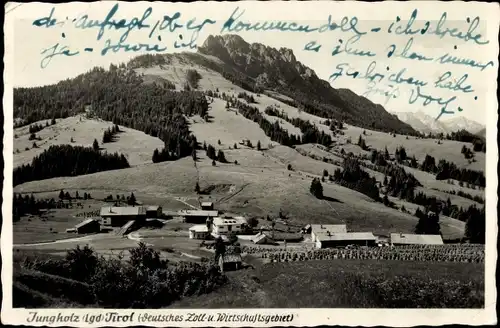 da anfragt ober kommen soll - ich schreibe
ja - so wie ich es ihm schon immer
geschrieben habe
Jungholz (Lgd) Tirol (deutsches Zoll u. Wirtschaftsgebiet)